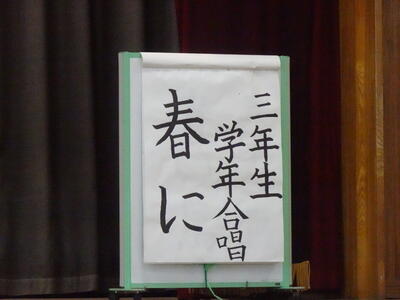 三年生
学年合唱
春に